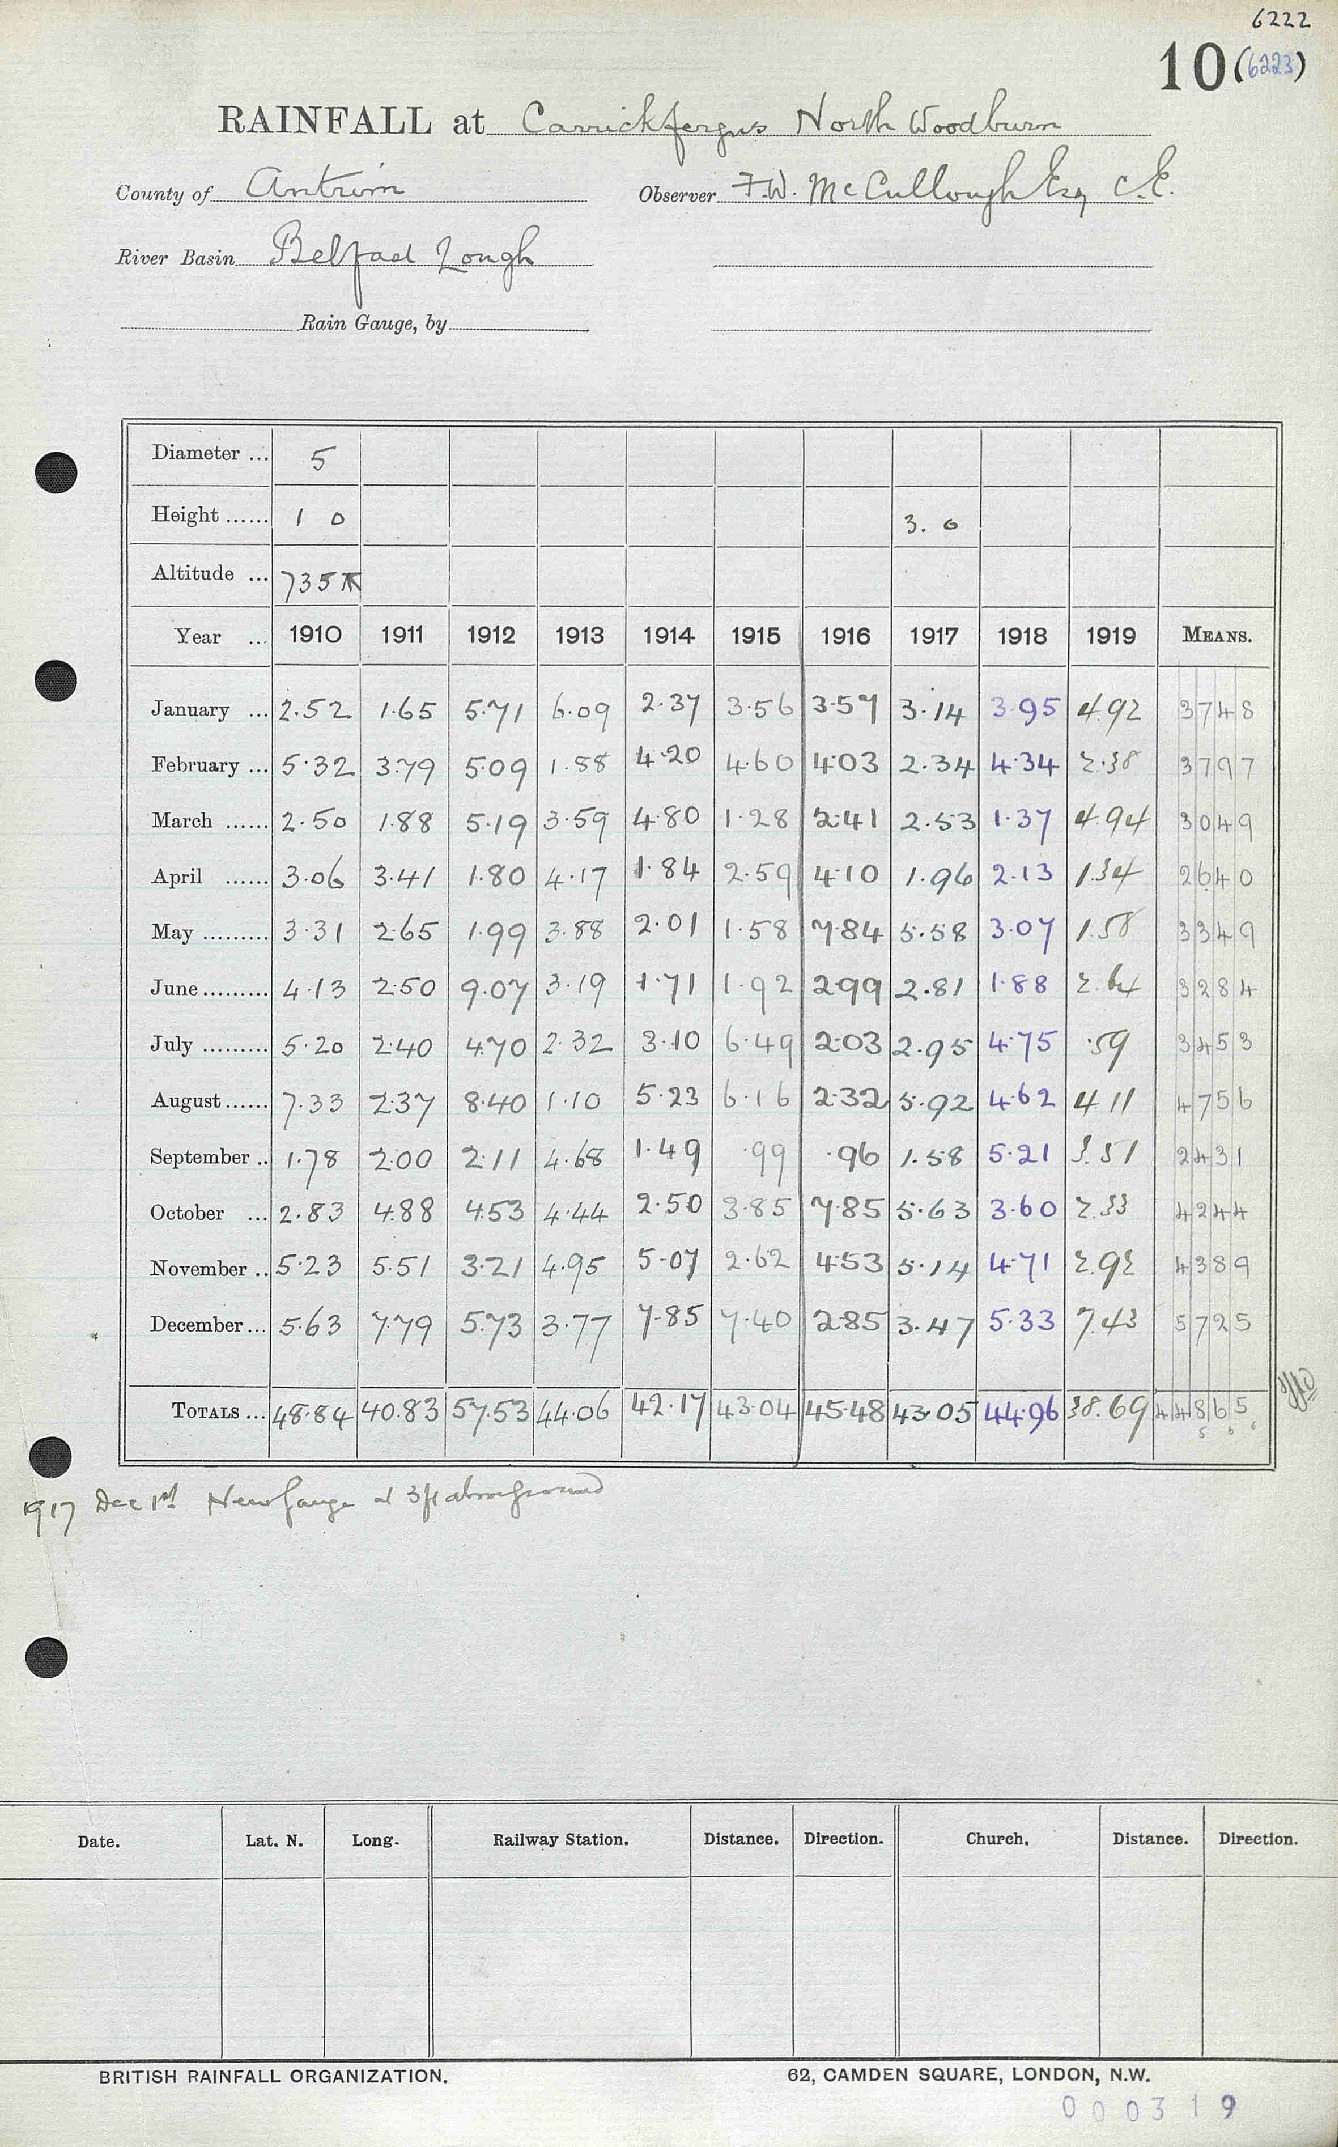 6222
10 (6223)
RAINFALL at Carrickfergus North Woodburn
County of Antrim Observer F.W. McCullough Esq C.E.
River Basin Belfast Lough
Rain Gauge, by
Diameter ... 5
Height ...... 1 0 3. 0
Altitude ... 735 ft
Year ... 1910 1911 1912 1913 1914 1915 1916 1917 1918 1919 MEANS.
January ... 2.52 1.65 5.71 6.09 2.37 3.56 3.57 3.14 3.95 4.92 3748
February ... 5.32 3.79 5.09 1.88 4.20 4.60 4.03 2.34 4.34 2.38 3797
March ...... 2.50 1.88 5.19 3.59 4.80 1.28 2.41 2.53 1.37 4.94 3049
April ...... 3.06 3.41 1.80 4.17 1.84 2.59 4.10 1.96 2.13 1.34 2640
May ......... 3.31 2.65 1.99 3.88 2.01 1.58 7.84 5.58 3.07 1.58 3349
June ......... 4.13 2.50 9.07 3.19 1.71 1.92 2.99 2.81 1.88 2.64 3284
July ......... 5.20 2.40 4.70 2.32 3.10 6.49 2.03 2.95 4.75 .59 3453
August ...... 7.33 2.37 8.40 1.10 5.23 6.16 2.32 5.92 4.62 4.11 4756
September .. 1.78 2.00 2.11 4.68 1.49 .99 .96 1.58 5.21 3.51 2431
October ... 2.83 4.88 4.53 4.44 2.50 3.85 7.85 5.63 3.60 2.33 4244
November .. 5.23 5.51 3.21 4.95 5.07 2.62 4.53 5.14 4.71 2.92 4389
December ... 5.63 7.79 5.73 3.77 7.85 7.40 2.85 3.47 5.33 7.43 5725
TOTALS ... 48.84 40.83 57.53 44.06 42.17 43.04 45.48 43.05 44.96 38.69 44865
1917 Dec 1st New Gauge at 3ft above ground
Date. Lat. N. Long. Railway Station. Distance. Direction. Church. Distance. Direction.
BRITISH RAINFALL ORGANIZATION. 62, CAMDEN SQUARE, LONDON, N.W.
000319